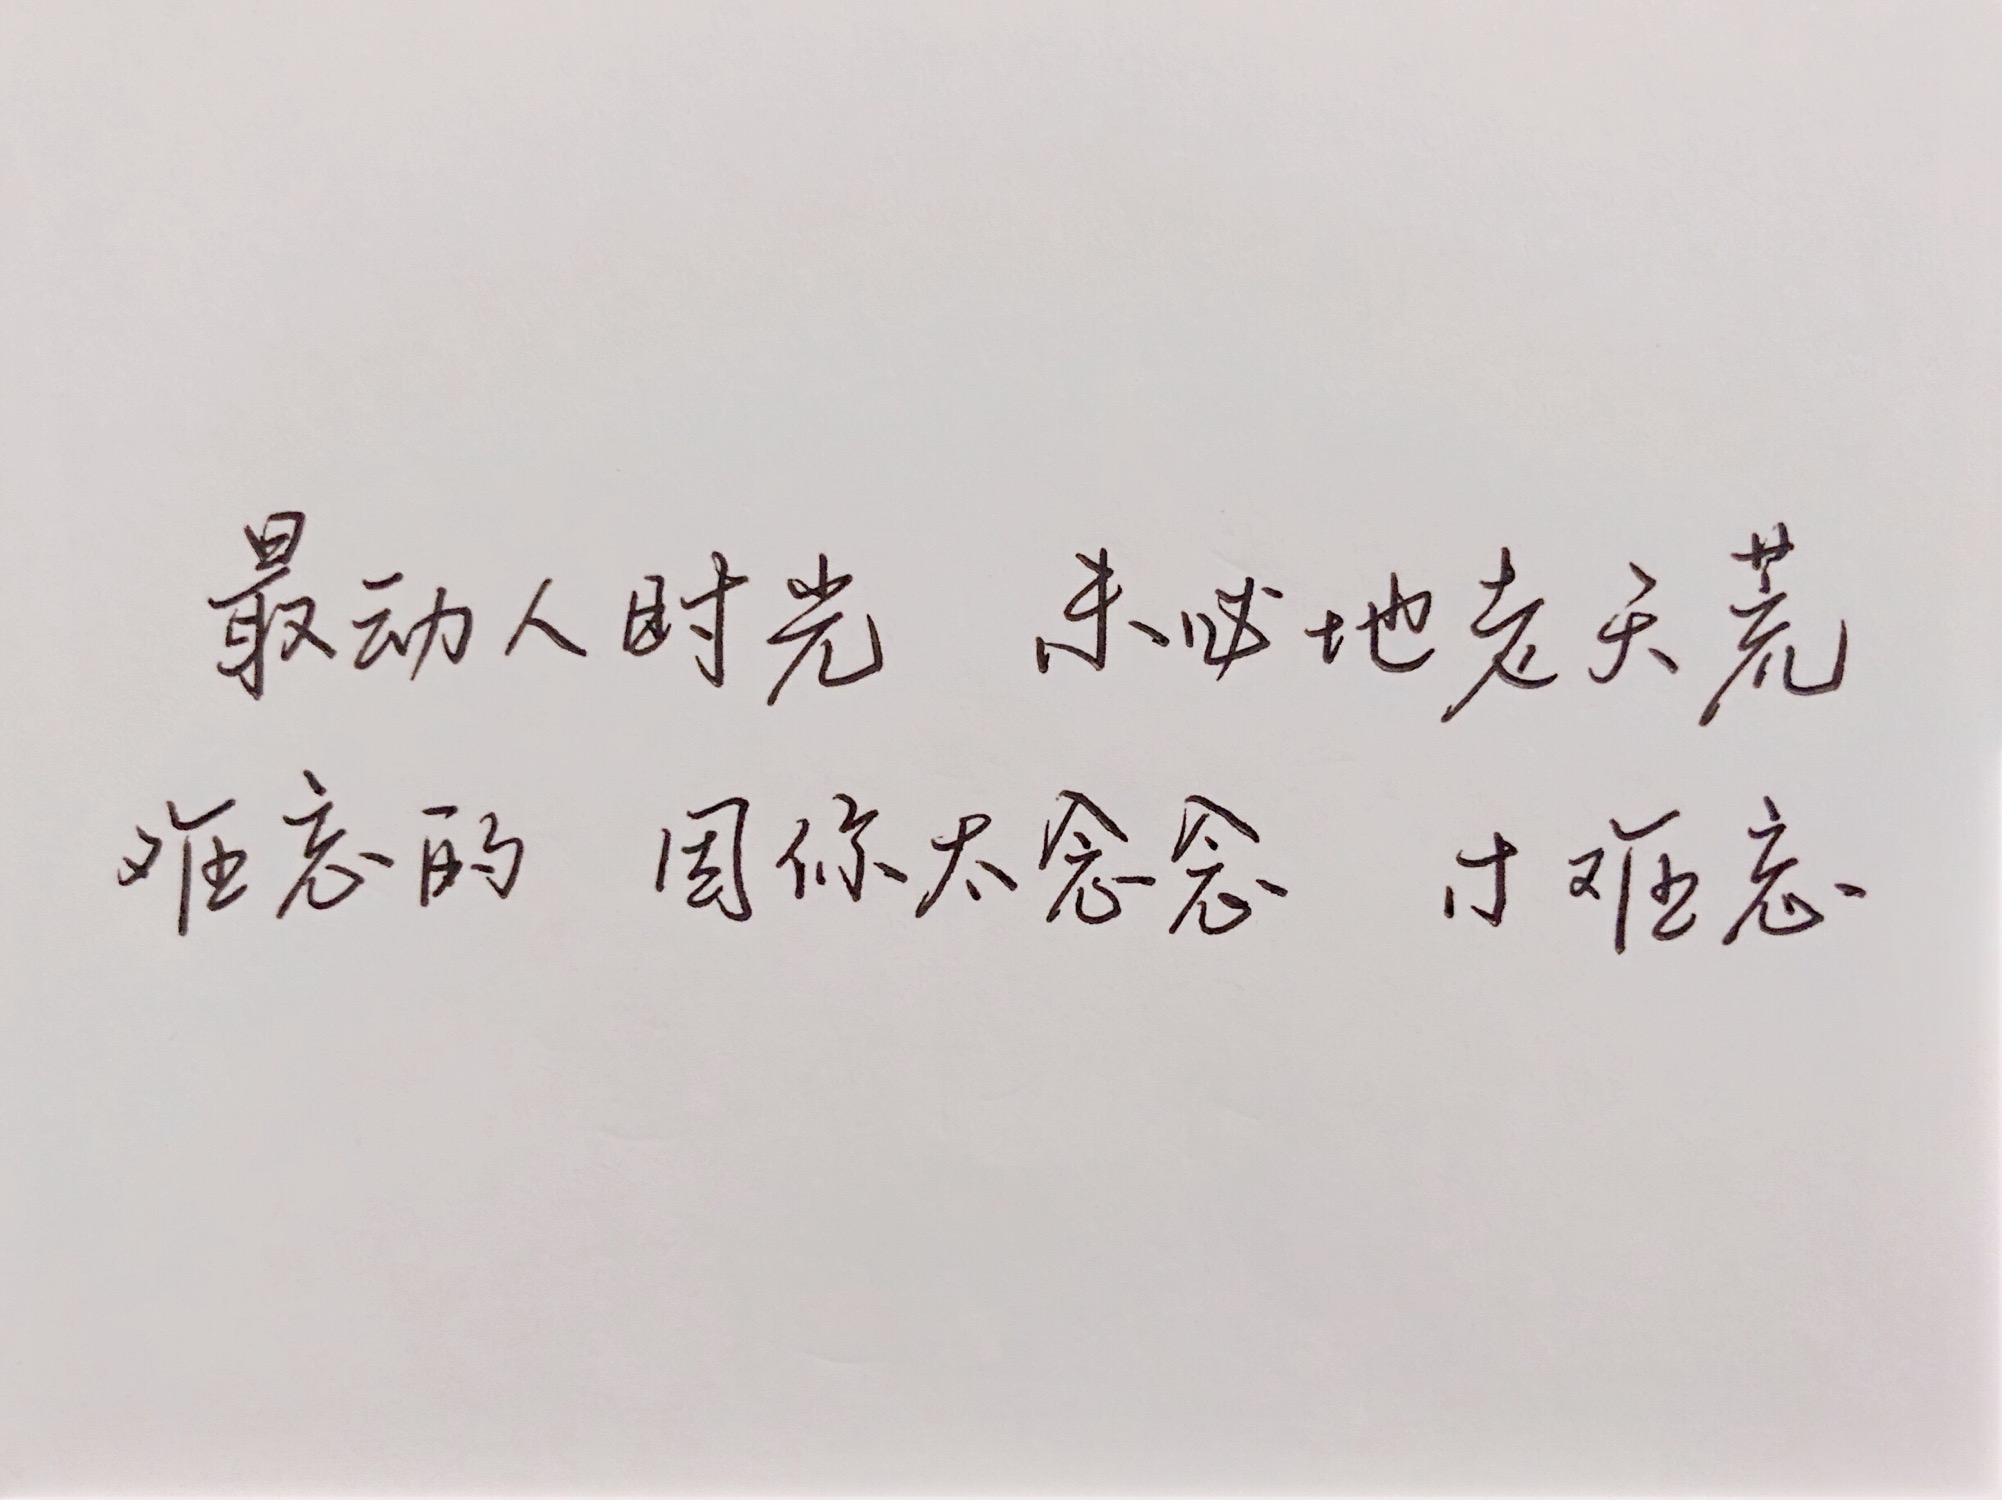 最动人时光 未必地老天荒
难忘的 因你太念念 才难忘